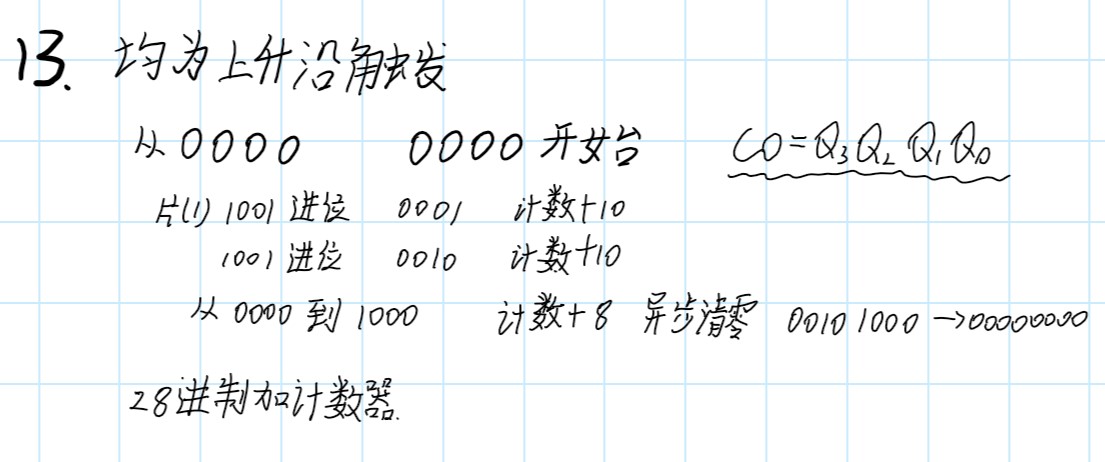 13. 均为上升沿触发
从0000 0000开始 CO=Q₃Q₂Q₁Q₀
片(1) 1001进位 0001 计数+10
1001进位 0010 计数+10
从0000到1000 计数+8 异步清零 00101000→00000000
28进制加计数器.